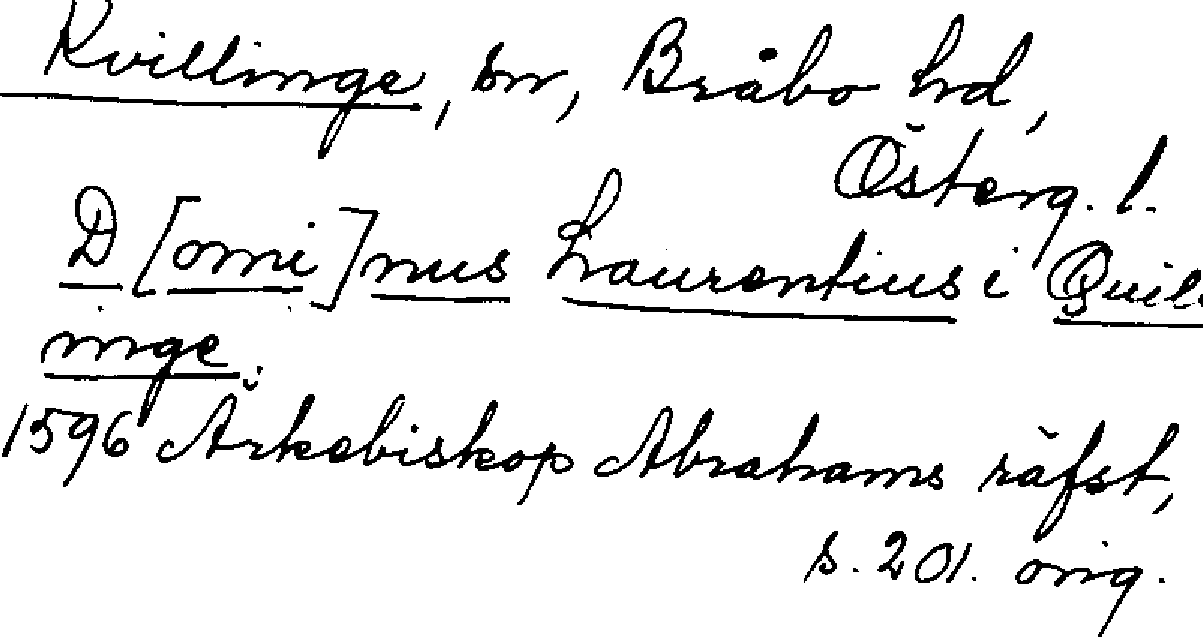 Kvillinge, sn, Bråbo hd,
Österg. l.
D[omi]nus Laurentius i Quil-
inge.
1596 Ärkebiskop Abrahams räfst,
s. 201. orig.